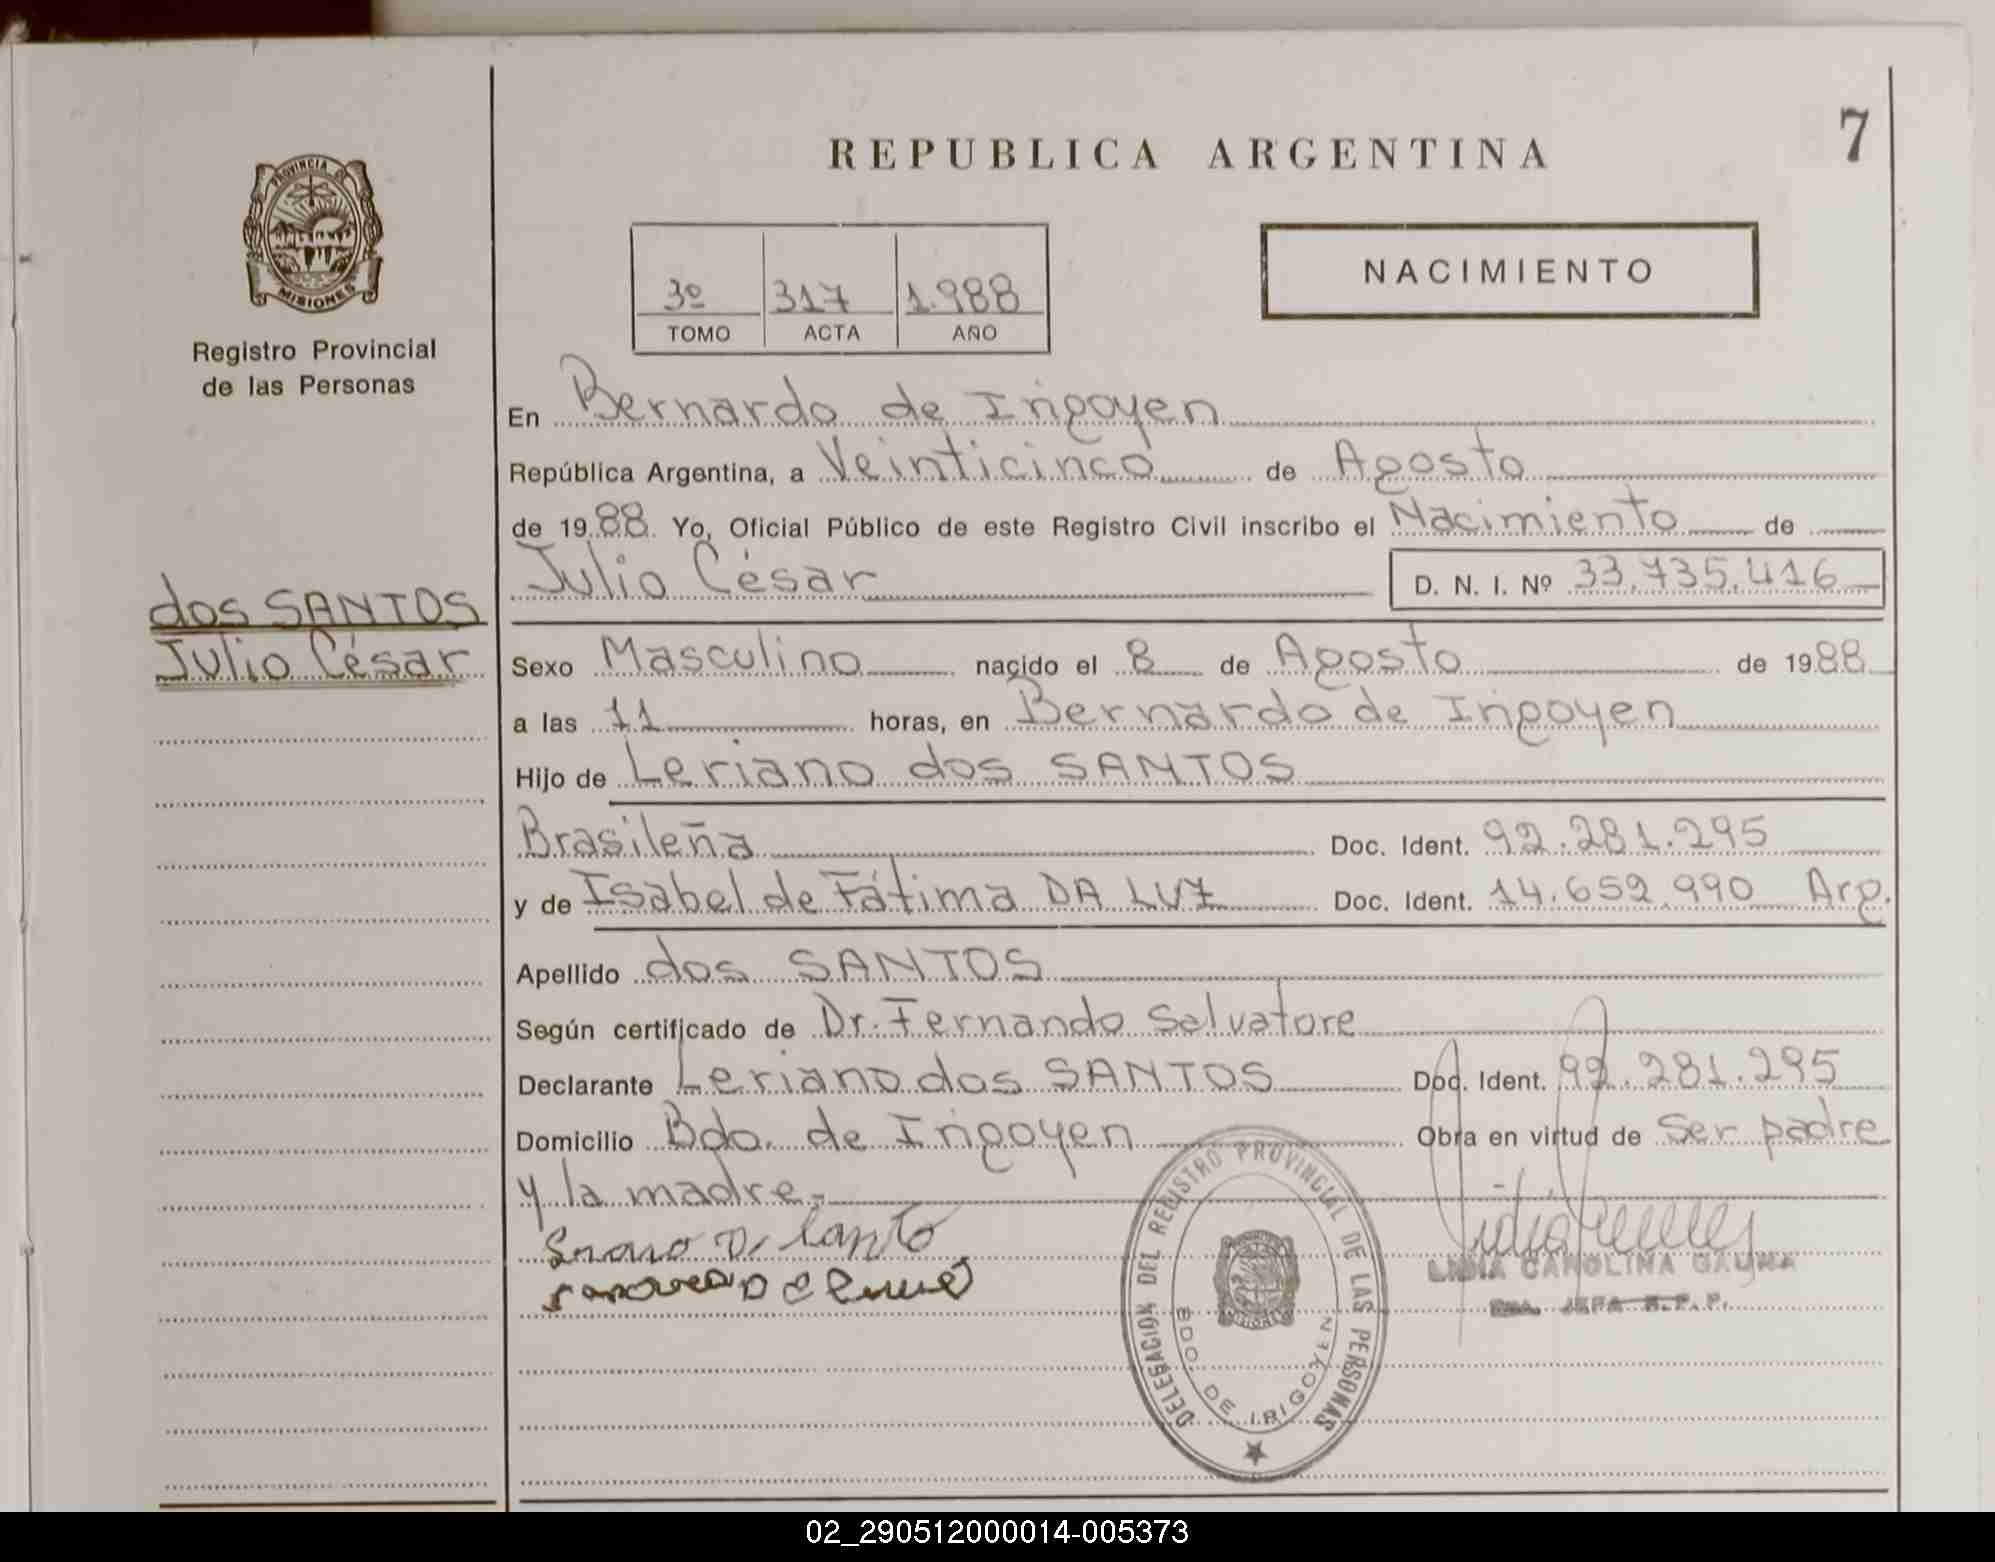 REPUBLICA ARGENTINA
7
PROVINCIA DE
MISIONES
Registro Provincial
de las Personas
3º 317 1.988
TOMO ACTA AÑO
NACIMIENTO
En Bernardo de Irigoyen
República Argentina, a Veinticinco de Agosto
de 1988 Yo, Oficial Público de este Registro Civil inscribo el Nacimiento de
Julio César D. N. I. Nº 33.735.416
dos SANTOS
Julio César
Sexo Masculino nacido el 8 de Agosto de 1988
a las 11 horas, en Bernardo de Irigoyen
Hijo de Leriano dos SANTOS
Brasileña Doc. Ident. 92.281.295
y de Isabel de Fátima DA LUZ Doc. Ident. 14.652.990 Arg.
Apellido dos SANTOS
Según certificado de Dr. Fernando Salvatore
Declarante Leriano dos SANTOS Doc. Ident. 92.281.295
Domicilio Bdo. de Irigoyen Obra en virtud de Ser padre
y la madre.-
DELEGACION DEL REGISTRO PROVINCIAL DE LAS PERSONAS
BDO. DE IRIGOYEN
LIDIA CAROLINA GAUNA
JEFA R.P.P.
02_290512000014-005373